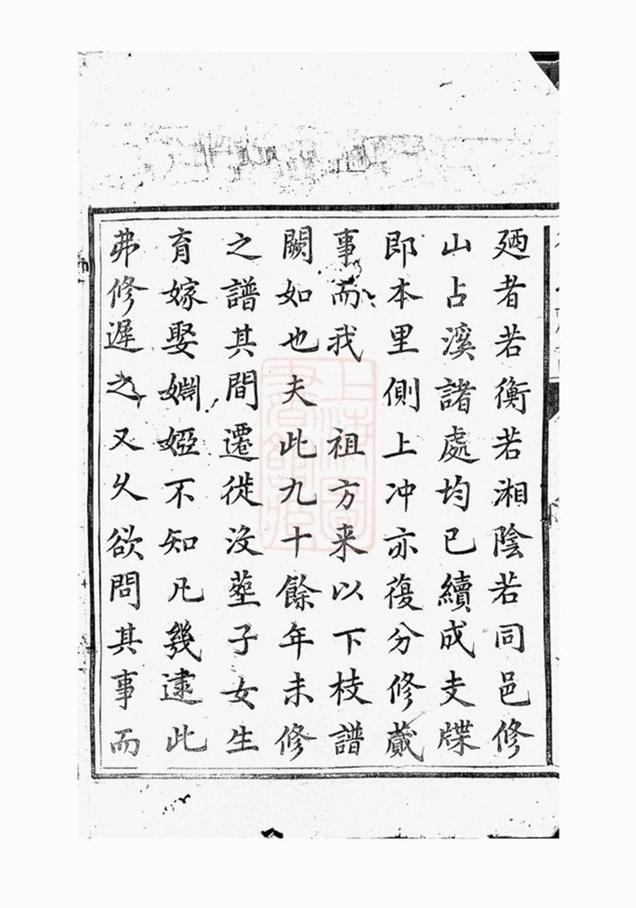 廼者若衡若湘陰若同邑修
山占溪諸處均已續成支牒
即本里側上冲亦復分修蕆
事而我　祖方来以下枝譜
闕如也夫此九十餘年未修
之譜其間遷徙沒塟子女生
育嫁娶姻婭不知凡幾逮此
弗修遲之又乆欲問其事而